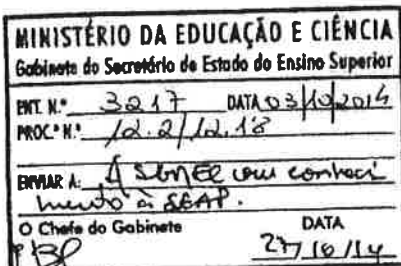 MINISTÉRIO DA EDUCAÇÃO E CIÊNCIA
Gabinete do Secretário de Estado do Ensino Superior
ENT. N.º 3217 DATA 03/10/2014
PROC.º N.º 12.2/12.18
ENVIAR A: À com conheci
mento à SEAP.
O Chefe do Gabinete DATA
27/10/14